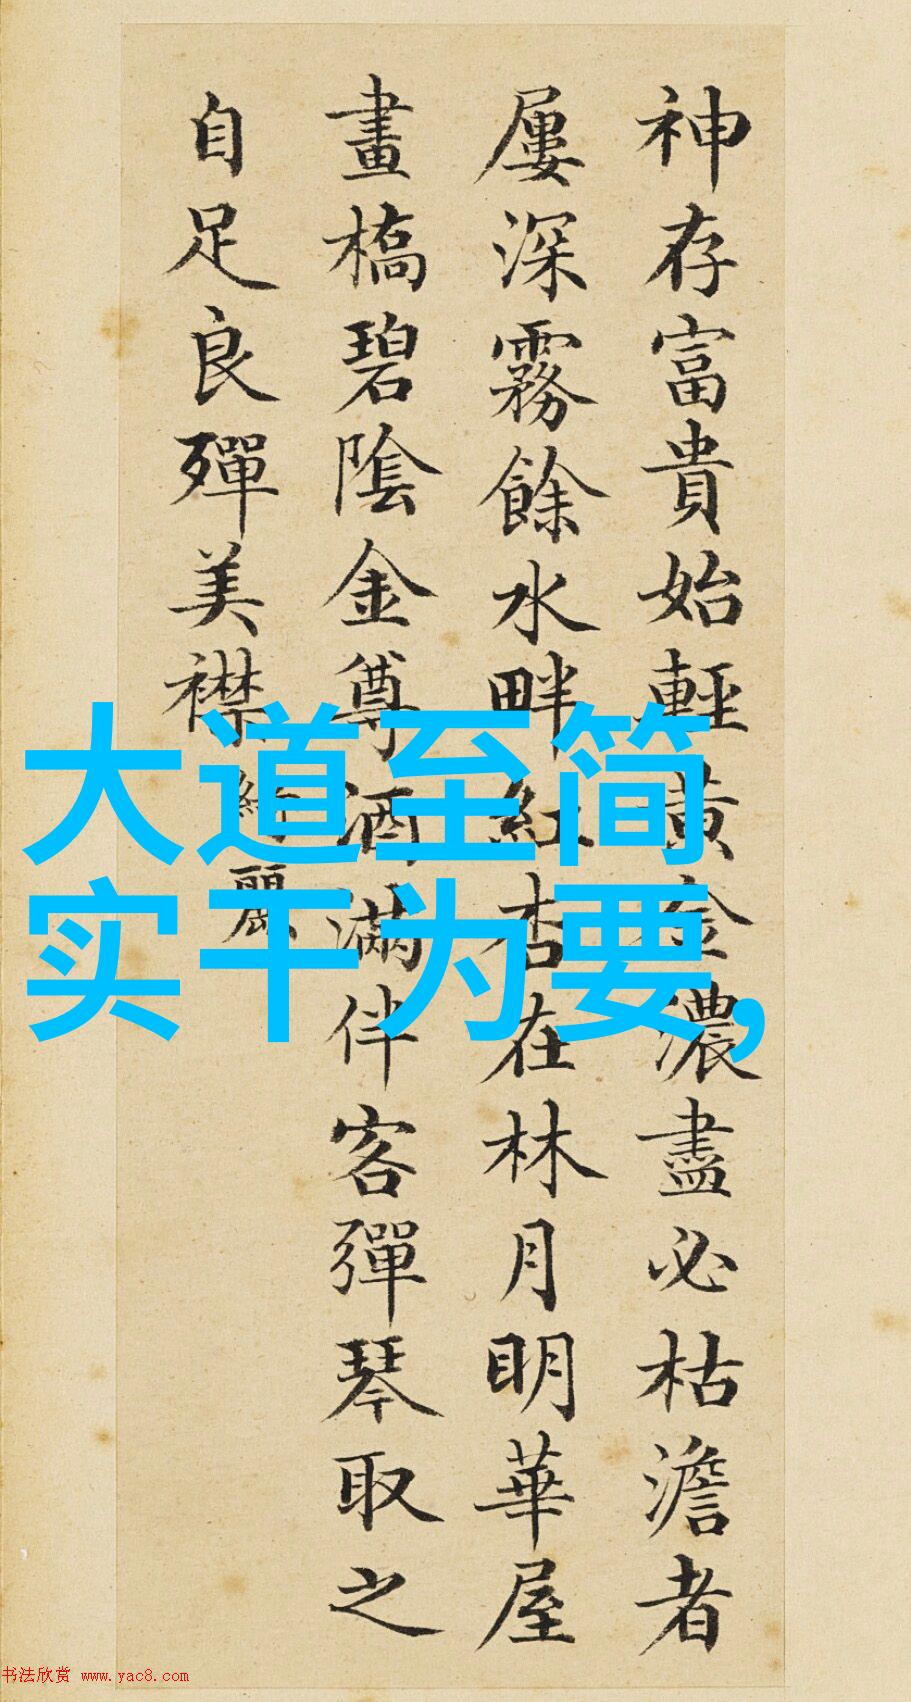 神存富貴始輕黃金濃盡必枯澹者
屢深霧餘水畔紅杏在林月明華屋
畫橋碧陰金尊酒滿伴客彈琴取之
自足良殫美襟
綺麗
大道至简
实干为要,
书法欣赏 www.yac8.com